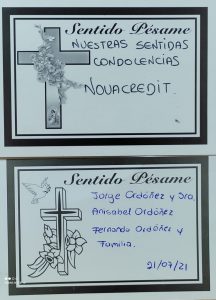 Sentido Pésame
NUESTRAS SENTIDAS
CONDOLENCIAS
NOVACREDIT.
Sentido Pésame
Jorge Ordóñez y Sra.
Anisabel Ordóñez
Fernando Ordóñez y
Familia.
21/07/21